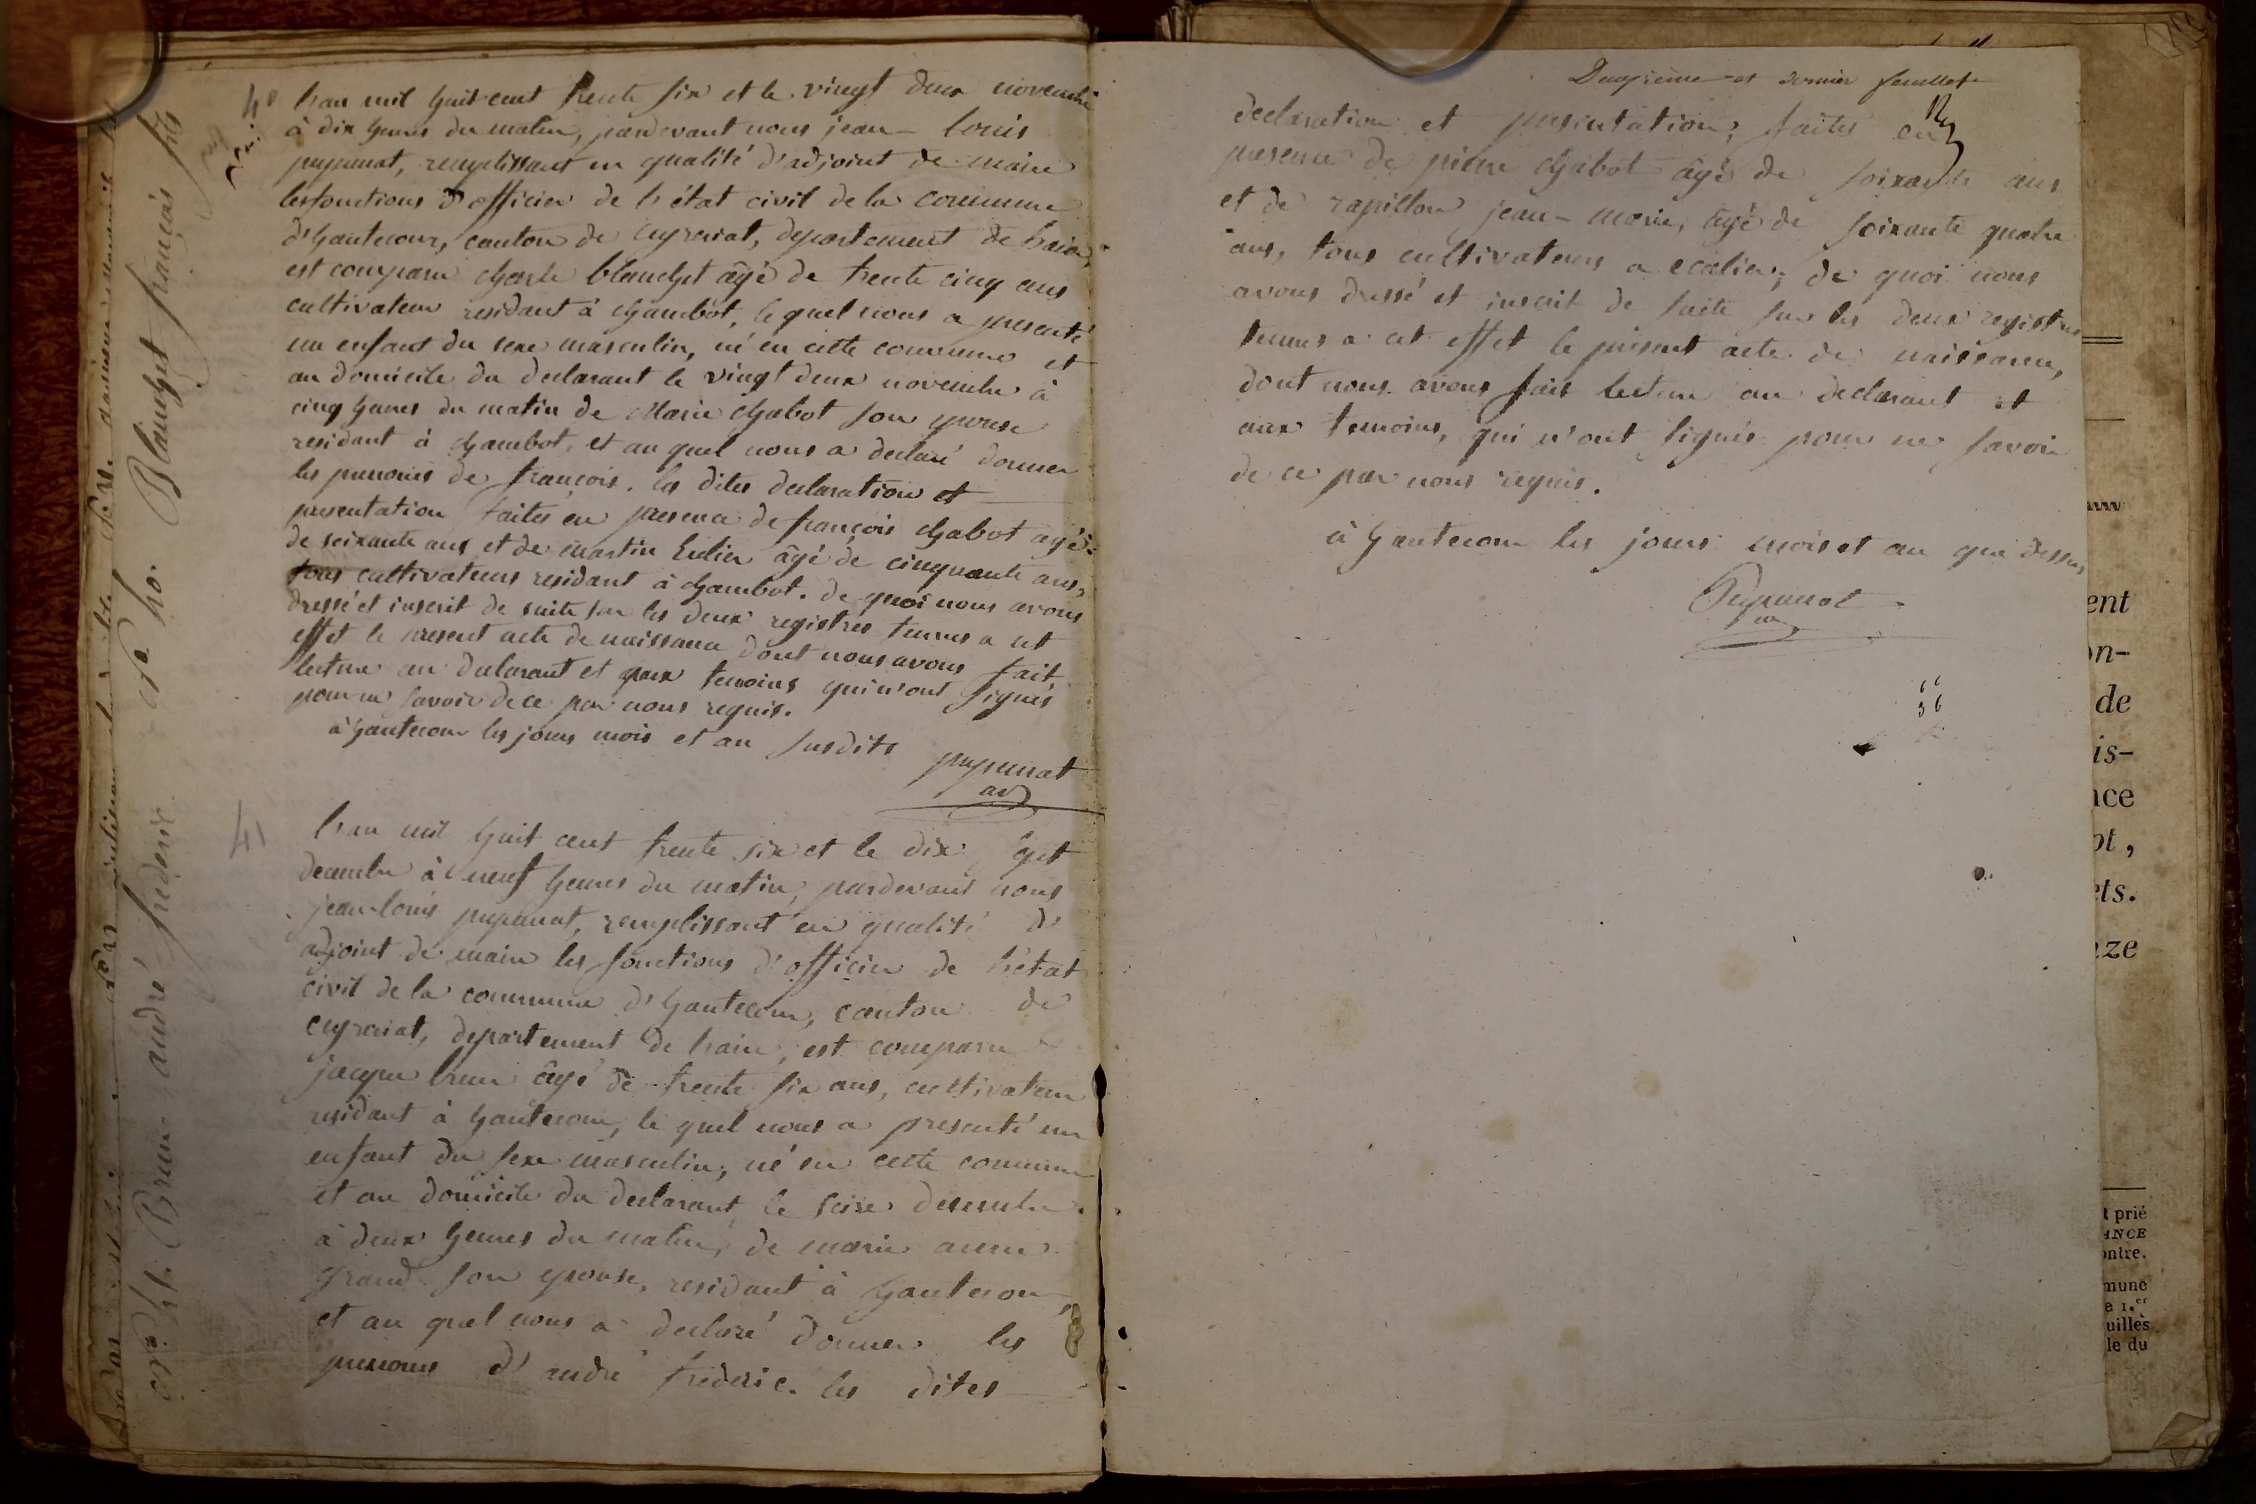 40
L'an mil huit cent trente six et le vingt deux novembre
à dix heures du matin, pardevant nous jean-louis
pupunat, remplissant en qualité d'adjoint de maire
les fonctions d'officier de l'état civil de la commune
d'hautecour, canton de ceyzeriat, departement de l'ain,
est comparu charle blanchet âgé de trente cinq ans
cultivateur residant à chambot, le quel nous a presenté
un enfant du sexe masculin, né en cette commune et
au domicile du declarant le vingt deux novembre à
cinq heures du matin de Marie chabot son epouse
residant à chambot, et au quel nous a declaré donner
les prenoms de françois. les dites declaration et
presentation faites en presence de françois chabot agé
de soixante ans et de martin âgé de cinquante ans,
tous cultivateurs residant à chambot. de quoi nous avons
dressé et inscrit de suite sur les deux registres tenus a cet
effet le present acte de naissance dont nous avons fait
lecture au declarant et aux temoins qui n'ont signés
pour ne savoir de ce par nous requis.
à hautecour les jours mois et an susdits
pupunat
adj
Blanchet françois fils
41
L'an mil huit cent trente six et le dix sept
decembre à neuf heures du matin, pardevant nous
jean-louis pupunat, remplissant en qualité d'
adjoint de maire les fonctions d'officier de l'état
civil de la commune d'hautecour, canton de
ceyzeriat, departement de l'ain, est comparu
jacque brun âgé de trente six ans, cultivateur
residant à hautecour, le quel nous a presenté un
enfant du sexe masculin, né en cette commune
et au domicile du declarant le seize decembre
à deux heures du matin, de marie anne
grand son epouse, residant à hautecour,
et au quel nous a declaré donner les
prenoms d'andré frederic. les dites
Brun andré frederic
Deuxième et dernier feuillet
declaration et presentation, faites en
presence de pierre chabot âgé de soixante ans
et de rapillon jean-marie, âgé de soixante quatre
ans, tous cultivateurs a, de quoi nous
avons dressé et inscrit de suite sur les deux registres
tenus a cet effet le present acte de naissance,
dont nous avons fait lecture au declarant et
aux temoins, qui n'ont signés pour ne savoir
de ce par nous requis.
à hautecour les jours mois et an que dessus
Pupunat
ent
on-
de
is-
nce
ot,
ets.
nze
t prié
ANCE
ontre.
mune
e 1.er
uilles
le du